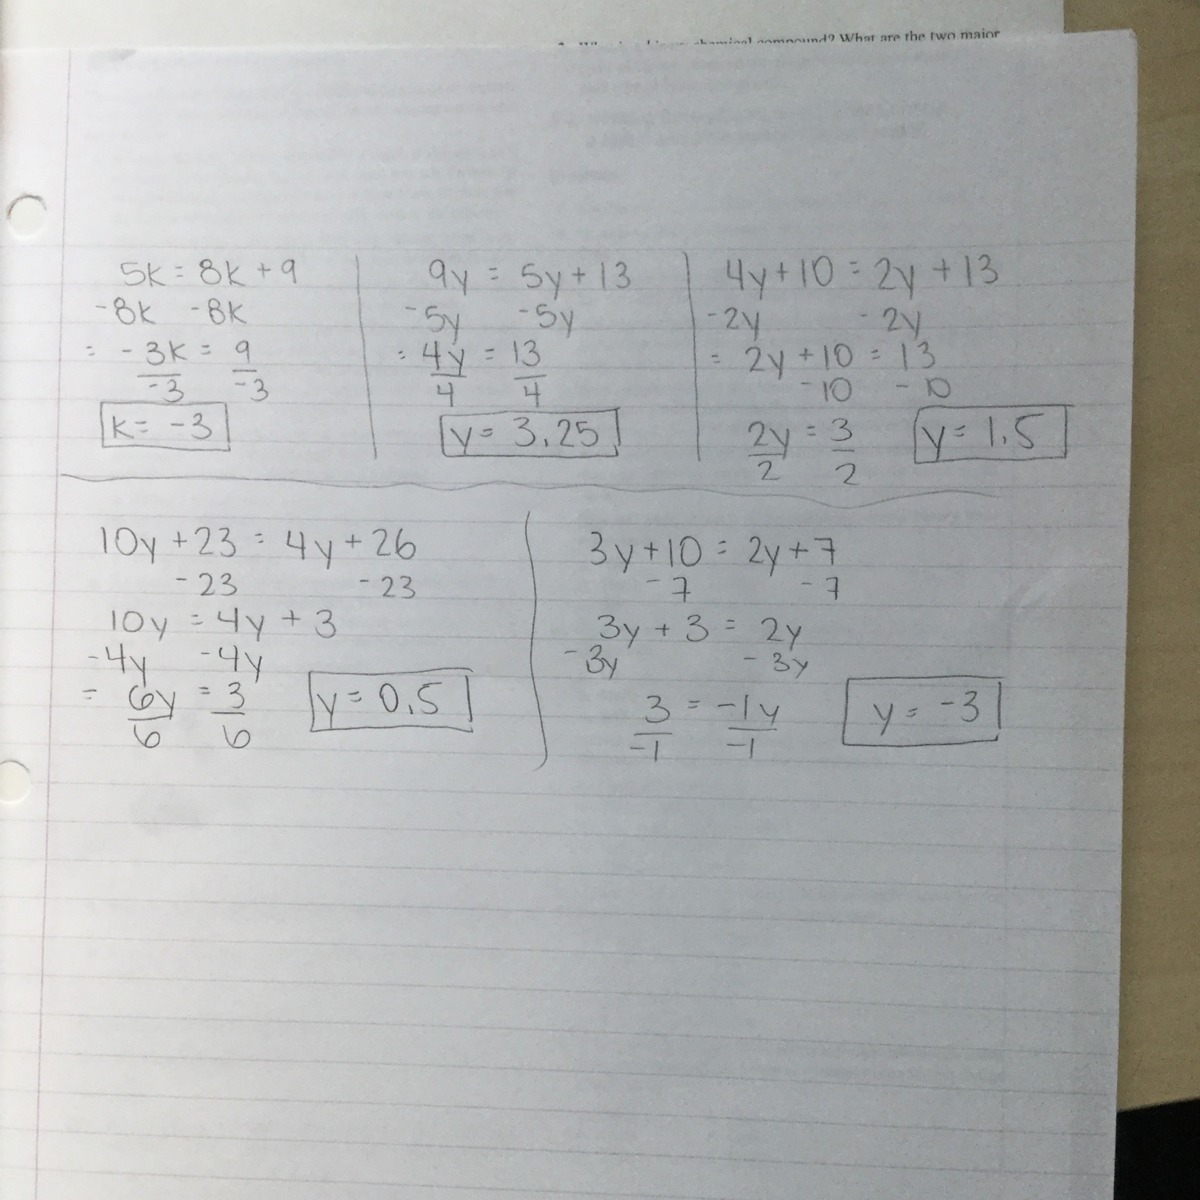 chemical compound? What are the two major
5k = 8k + 9
-8k -8k
= -3k = 9
-3 -3
k = -3
9y = 5y + 13
-5y -5y
= 4y = 13
4 4
y = 3.25
4y + 10 = 2y + 13
-2y -2y
= 2y + 10 = 13
-10 -10
2y = 3
2 2
y = 1.5
10y + 23 = 4y + 26
-23 -23
10y = 4y + 3
-4y -4y
= 6y = 3
6 6
y = 0.5
3y + 10 = 2y + 7
-7 -7
3y + 3 = 2y
-3y -3y
3 = -1y
-1 -1
y = -3